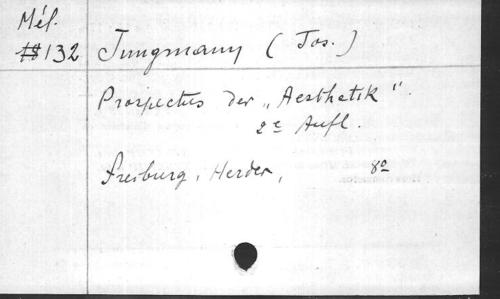 Mél.
132 Jungmann ( Jos. )
Prospectus der „Aesthetik“.
2e Aufl.
Freiburg, Herder, 8o